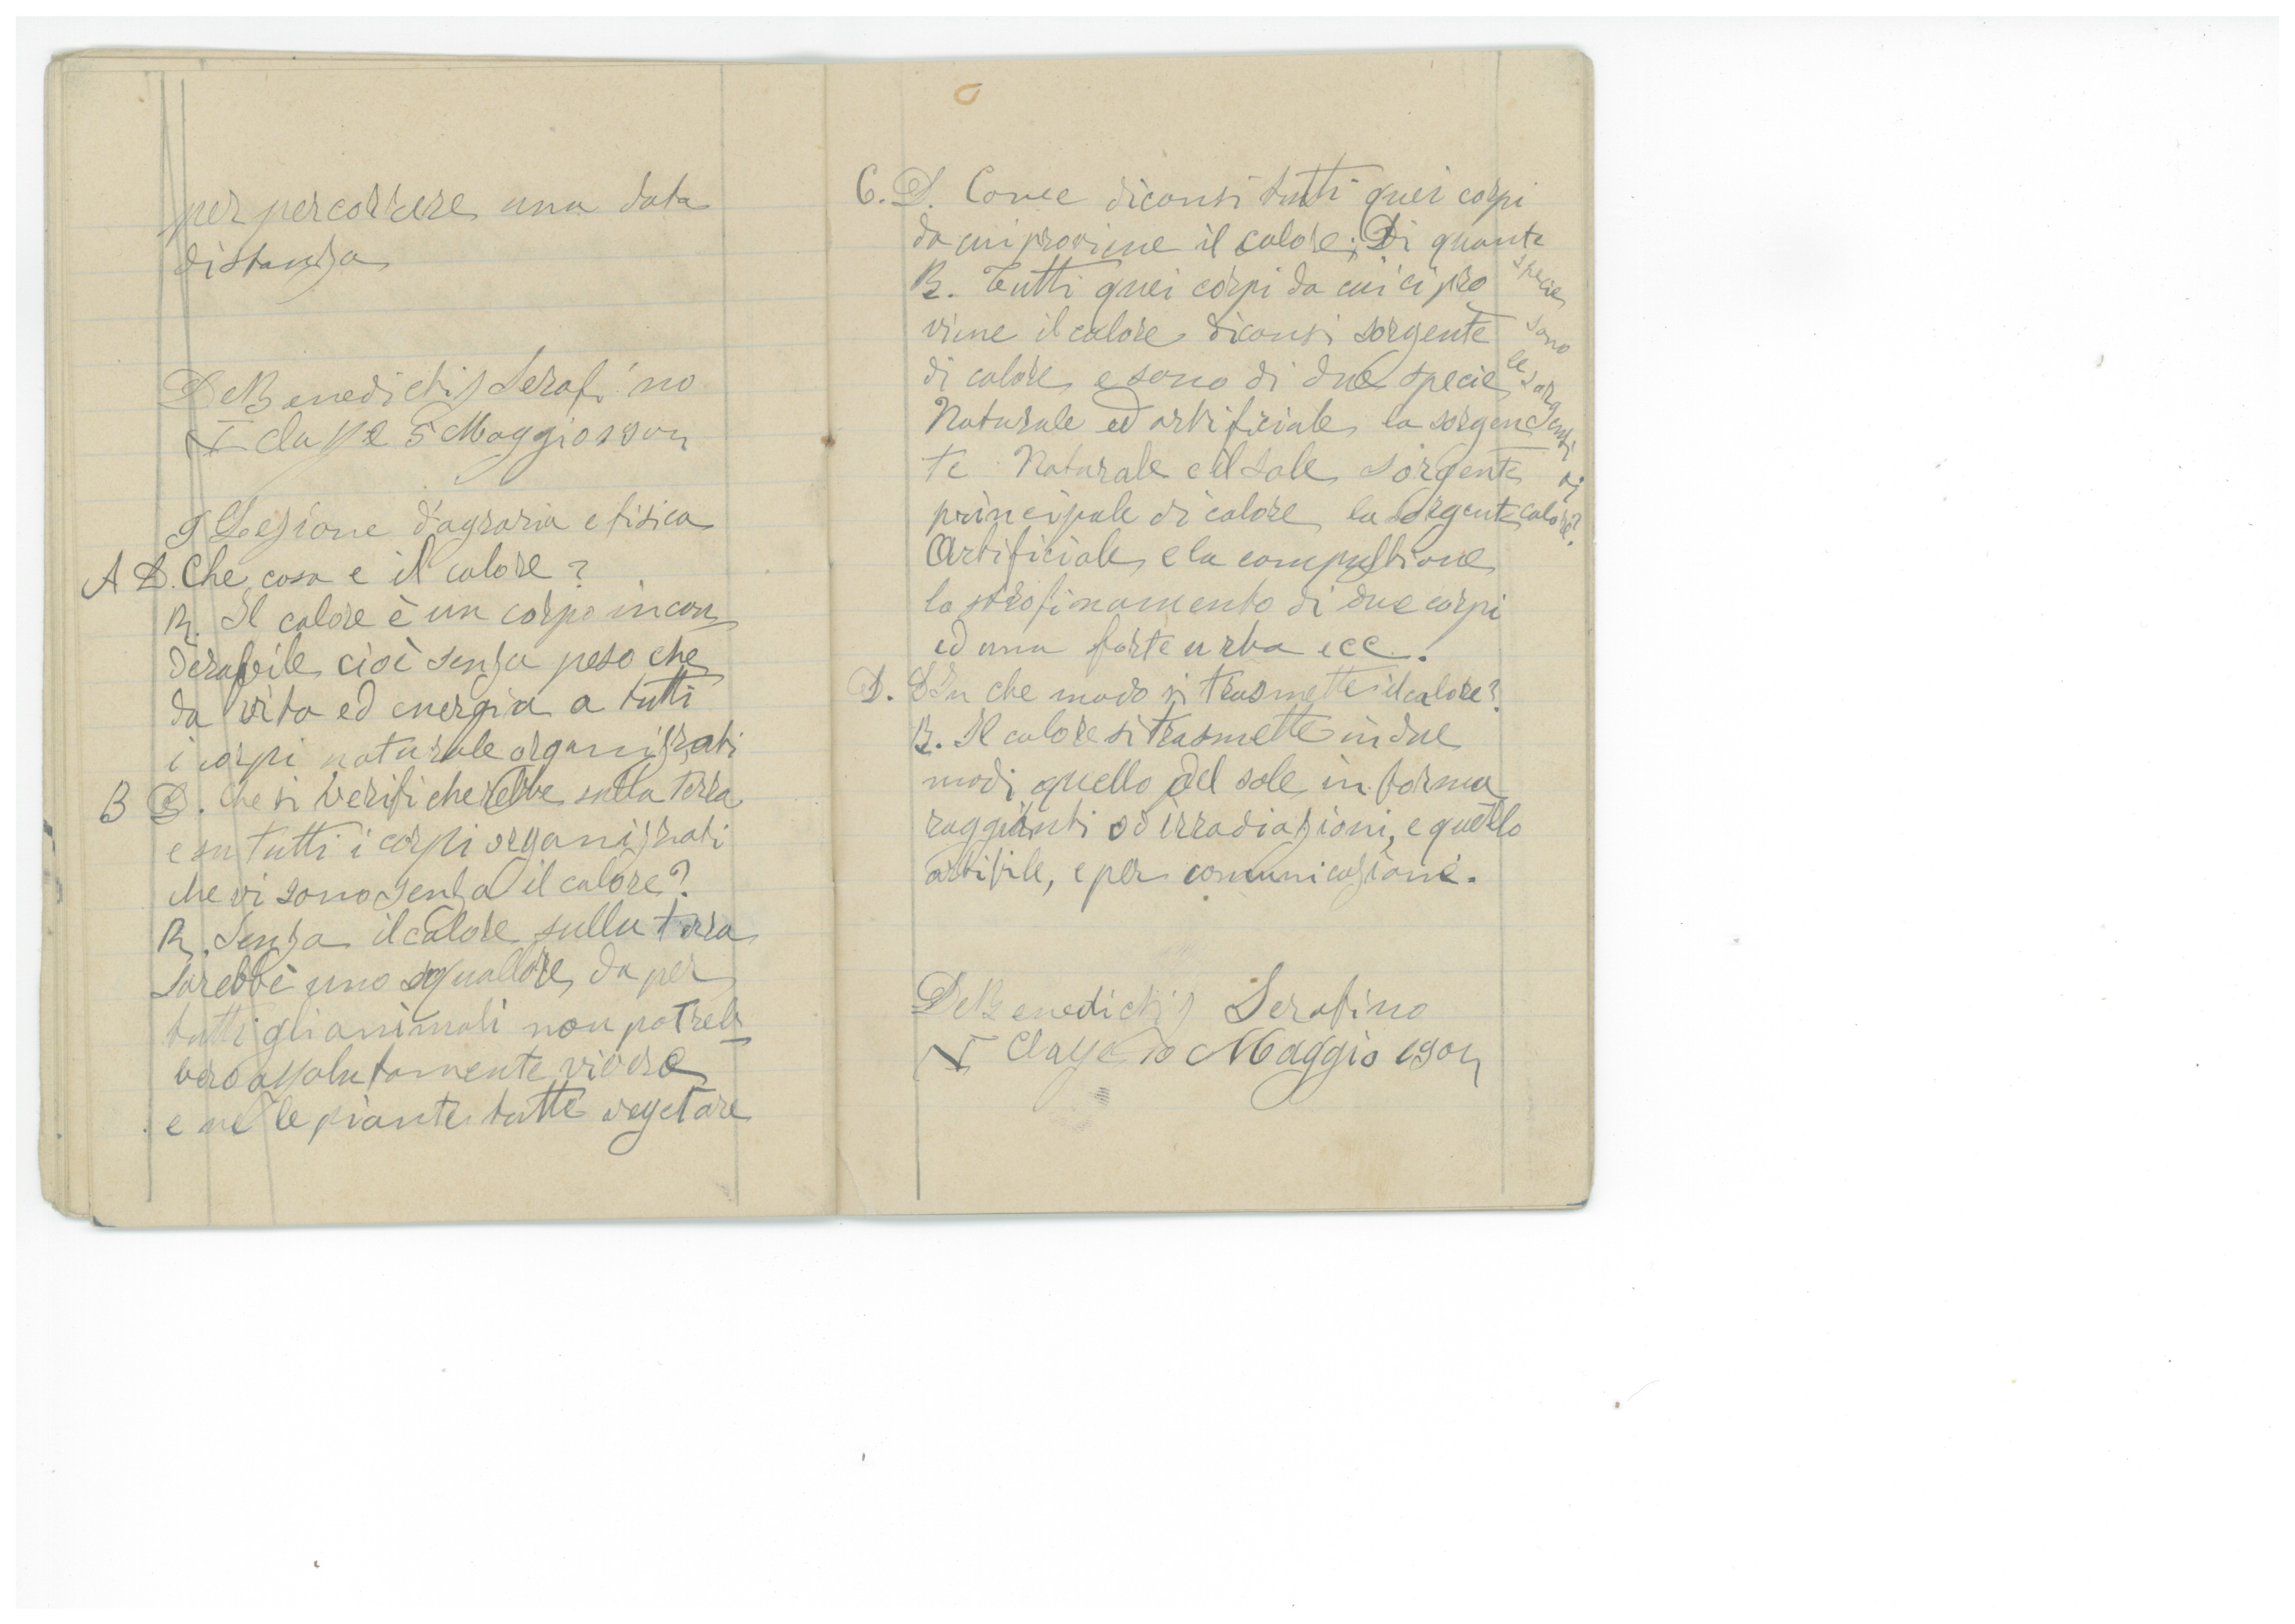 per percorrere una data
distanza
De Benedictis Serafino
V classe 5 Maggio
9 Lezione d'agraria e fisica
A D. Che cosa e il calore?
R. Il calore è un corpo incon
derabile cioè senza peso che
da vita ed energia a tutti
i corpi naturale organizzati
B D. Che si verificherebbe sulla terra
e su tutti i corpi organizzati
che vi sono senza il calore?
R. Senza il calore sulla terra
sarebbe uno squallore, da per
tutti gli animali non potreb
bero assolutamente vivere
e ne le piante tutte vegetare
C. D. Come diconsi tutti quei corpi
da cui proviene il calore; Di quante
specie
sono
le sorgenti
di
calore?
R. Tutti quei corpi da cui ci pro
viene il calore diconsi sorgente
di calore e sono di due specie
Naturale ed artificiale la sorgen
te Naturale e il sole sorgente
principale di calore la sorgente
Artificiale e la
lo strofinamento di due corpi
ed una forte urta ecc.
D. D In che modo si trasmette il calore?
R. Il calore si trasmette in due
modi quello del sole in forma
raggianti od irradiazioni, e quello
artifile, e per comunicazione.
De Benedictis Serafino
V Classe 10 Maggio